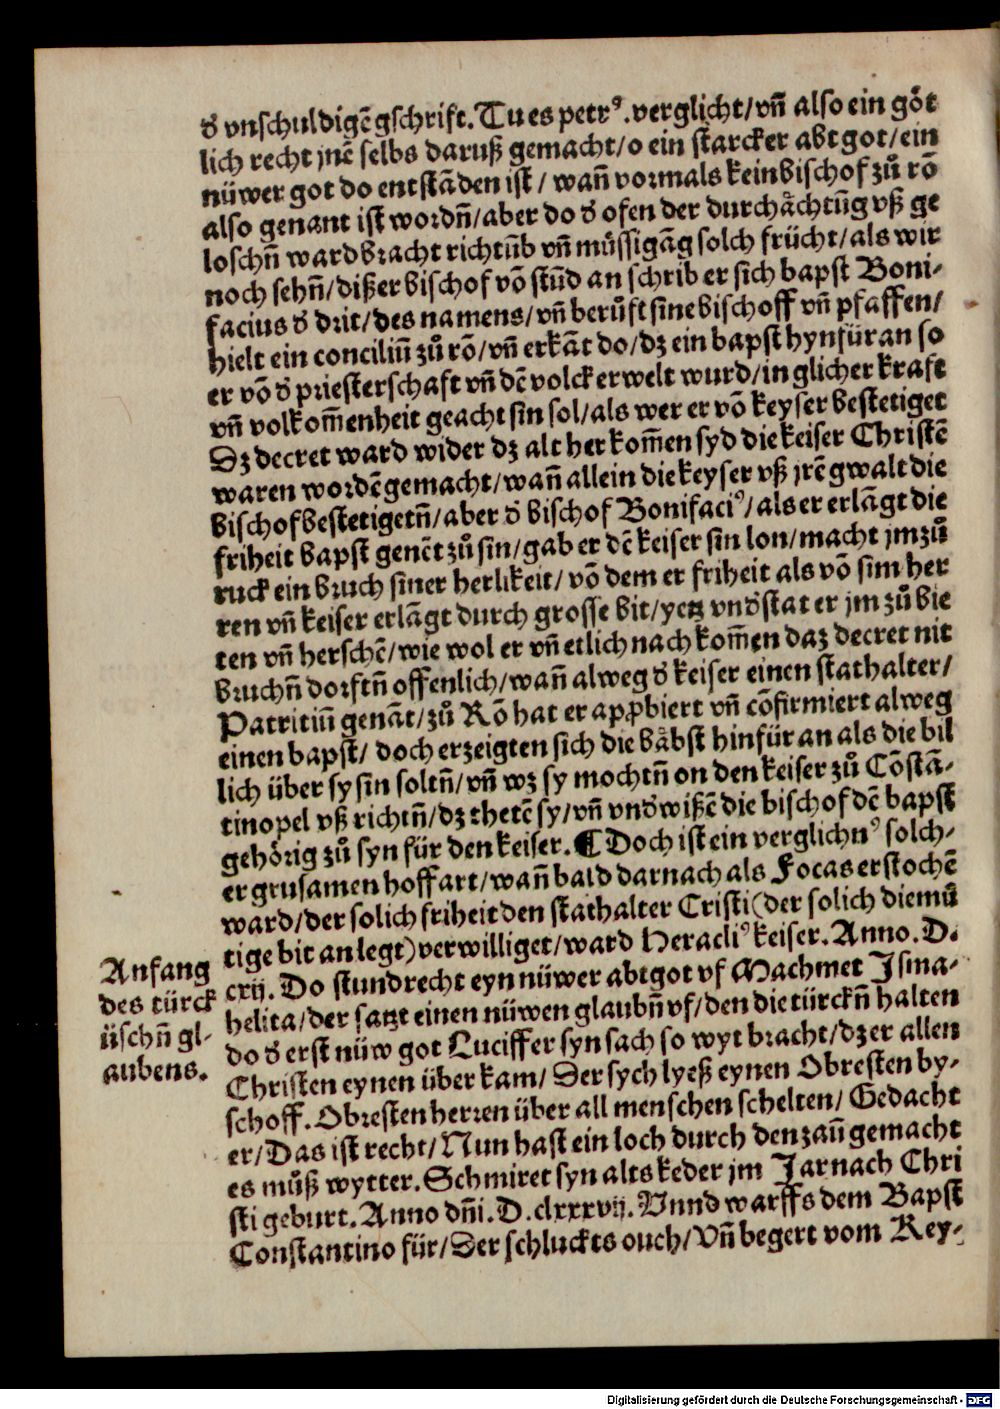 d' vnschuldigē gschrift. Tu es petrꝰ. verglicht/ vn̄ also ein goͤt
lich recht jnē selbs daruß gemacht/ o ein starcker abtgot/ ein
nüwer got do entstādēn ist/ wan̄ vormals kein bischof zuͦ rō
also genant ist wordn̄/ aber do d' ofen der durchaͤchtūg vß ge
loschn̄ ward bracht richtūb vn̄ muͤssigāg solch frücht/ als wir
noch sehn̄/ dißer bischof vō stūd an schrib er sich bapst Boni-
facius d' drit/ des namens/ vn̄ beruͦft sine bischoff vn̄ pfaffen/
hielt ein conciliū zuͦ rō/ vn̄ erkāt do/ dz ein bapst hynfür an so
er vō d' priesterschaft vn̄ dē volck erwelt wurd/ in glicher kraft
vn̄ volkom̄enheit geacht sin sol/ als wer er vō keyser bestetiget
Dz decret ward wider dz alt herkom̄en syd die keiser Christē
waren wordē gemacht/ wan̄ allein die keyser vß jrē gwalt die
bischof bestetigetn̄/ aber d' bischof Bonifaciꝰ/ als er erlāgt die
friheit bapst genēt zuͦ sin/ gab er dē keiser sin lon/ macht jm zuͦ
ruck ein bruch siner herlikeit/ vō dem er friheit als vō sim her
ren vn̄ keiser erlāgt durch grosse bit/ yetz vnd'stat er jm zuͦ bie
ten vn̄ herschē/ wie wol er vn̄ etlich nachkom̄en daz decret nit
bruchn̄ dorftn̄ offenlich/ wan̄ alweg d' keiser einen stathalter/
Patritiū genāt/ zuͦ Rō hat er apꝓbiert vn̄ cōfirmiert alweg
einen bapst/ doch erzeigten sich die baͤbst hinfür an als die bil
lich über sy sin soltn̄/ vn̄ wz sy mochtn̄ on den keiser zuͦ Cōstā-
tinopel vß richtn̄/ dz thetē sy/ vn̄ vnd'wißē die bischof dē bapst
gehoͤrig zuͦ syn für den keiser. ¶ Doch ist ein verglichnꝰ solch-
er grusamen hoffart/ wan̄ bald darnach als Focas erstochē
ward/ der solich friheit den stathalter Cristi (der solich diemuͤ
tige bit an legt) verwilliget/ ward Heracliꝰ keiser. Anno. D.
cxij. Do stund recht eyn nüwer abtgot vf Machmet Isma-
helita/ der satzt einen nüwen glaubn̄ vf/ den die türckn̄ halten
do d' erst nüw got Luciffer syn sach so wyt bracht/ dz er allen
Christen eynen über kam/ Der sych lyeß eynen Obresten by-
schoff. Obresten herren über all menschen schelten/ Gedacht
er/ Das ist recht/ Nun hast ein loch durch den zaū gemacht
es muͦß wytter. Schmiret syn alts keder jm Jar nach Chri
sti geburt. Anno dn̄i. D. clxxxvij. Vnnd warffs dem Bapst
Constantino für/ Der schluckts ouch/ Vn̄ begert vom Key-
Anfang
des türck
üschn̄ gl-
aubens.
Digitalisierung gefördert durch die Deutsche Forschungsgemeinschaft - DFG